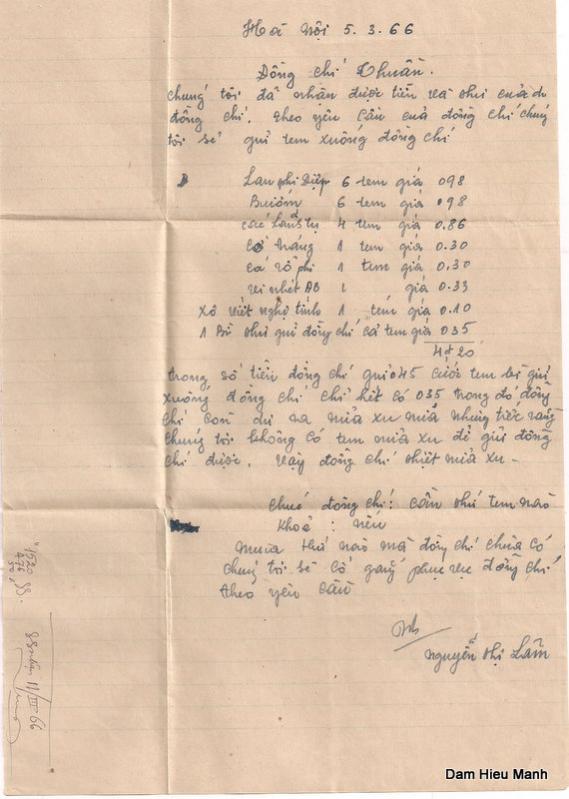 Hà Nội 5.3.66
Đồng chí Thuần.
chúng tôi đã nhận được tiền và thư của đ
đồng chí. theo yêu cầu của đồng chí chúng
tôi sẽ gửi tem xuống đồng chí
Lan phi Điệp 6 tem giá 098
Bướm 6 tem giá 098
các 4 tem giá 0.86
1 tem giá 0.30
cá rô phi 1 tem giá 0.30
1 giá 0.33
Xô viết nghệ tĩnh 1 tem giá 0.10
1 Bì thư gửi đồng chí cả tem giá 035
4đ20
trong số tiền đồng chí gửi 045 cước tem bì gửi
xuống đồng chí chỉ hết có 035 trong đó đồng
chí còn dư ra nửa xu nữa nhưng tiếc rằng
chúng tôi không có tem nửa xu để gửi đồng
chí được. vậy đồng chí thiệt nửa xu -
chúc đồng chí: cần thứ tem nào
khoẻ: nếu
mua thứ nào mà đồng chí chưa có
chúng tôi sẽ cố gắng phục vụ đồng chí
theo yêu cầu
Nguyễn thị Lâm
11/III 66
Dam Hieu Manh